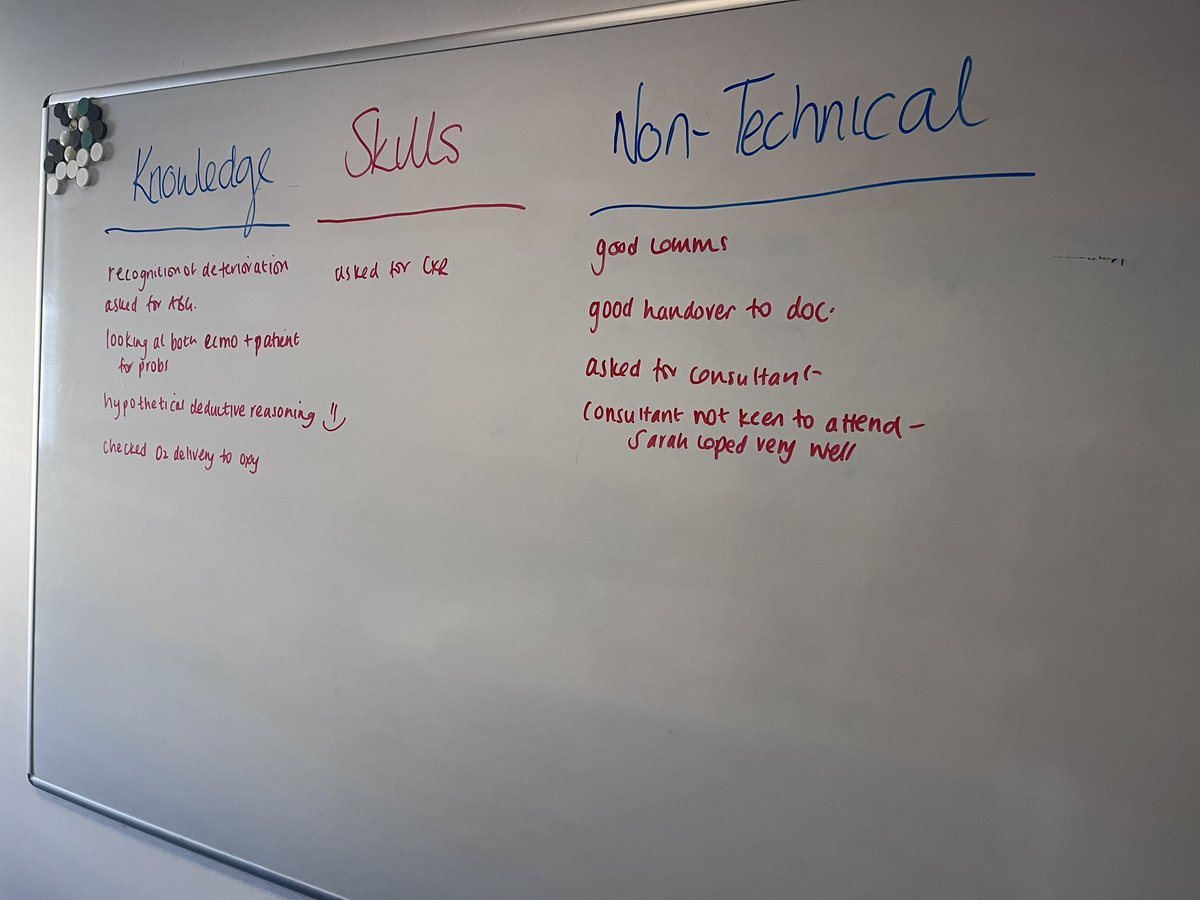 Knowledge
recognition of deterioration
asked for ABG.
looking at both ecmo + patient
for probs
hypothetical deductive reasoning
checked O2 delivery to oxy
Skills
asked for CXR
Non-Technical
good comms
good handover to doc.
asked for consultant
consultant not keen to attend -
Sarah coped very well